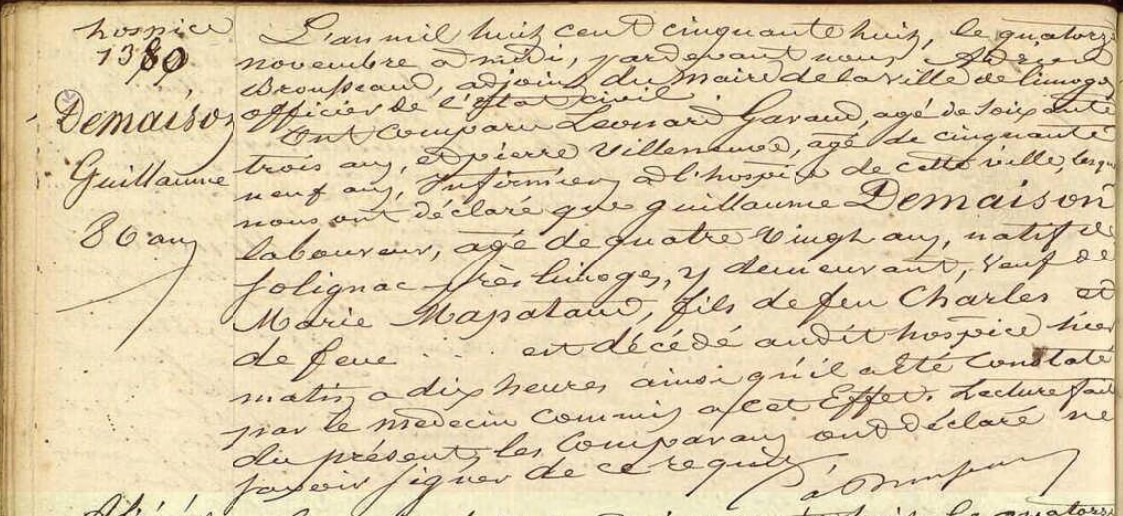 hospice
1380
Demaison
Guillaume
80 ans
L'an mil huit cent cinquante huit, le quatorze
novembre à midi, pardevant nous Adrien
Brousseaud, adjoint du maire de la ville de limoges
officier de l'état civil.
Ont comparu Léonard Garaud, agé de soixante
trois ans, et pierre Villeneuve, agé de cinquante
neuf ans, infirmiers à l'hospice de cette ville, lesquels
nous ont déclaré que guillaume Demaison
laboureur, agé de quatre vingt ans, natif de
Solignac près limoges, y demeurant, veuf de
Marie Mapataud, fils de feu Charles et
de feue . . . . est décédé audit hospice hier
matin à dix heures ainsi qu'il a été constaté
par le medecin commis a cet Effet. Lecture faite
du présent, les comparans ont déclaré ne
savoir signer de ce requis.